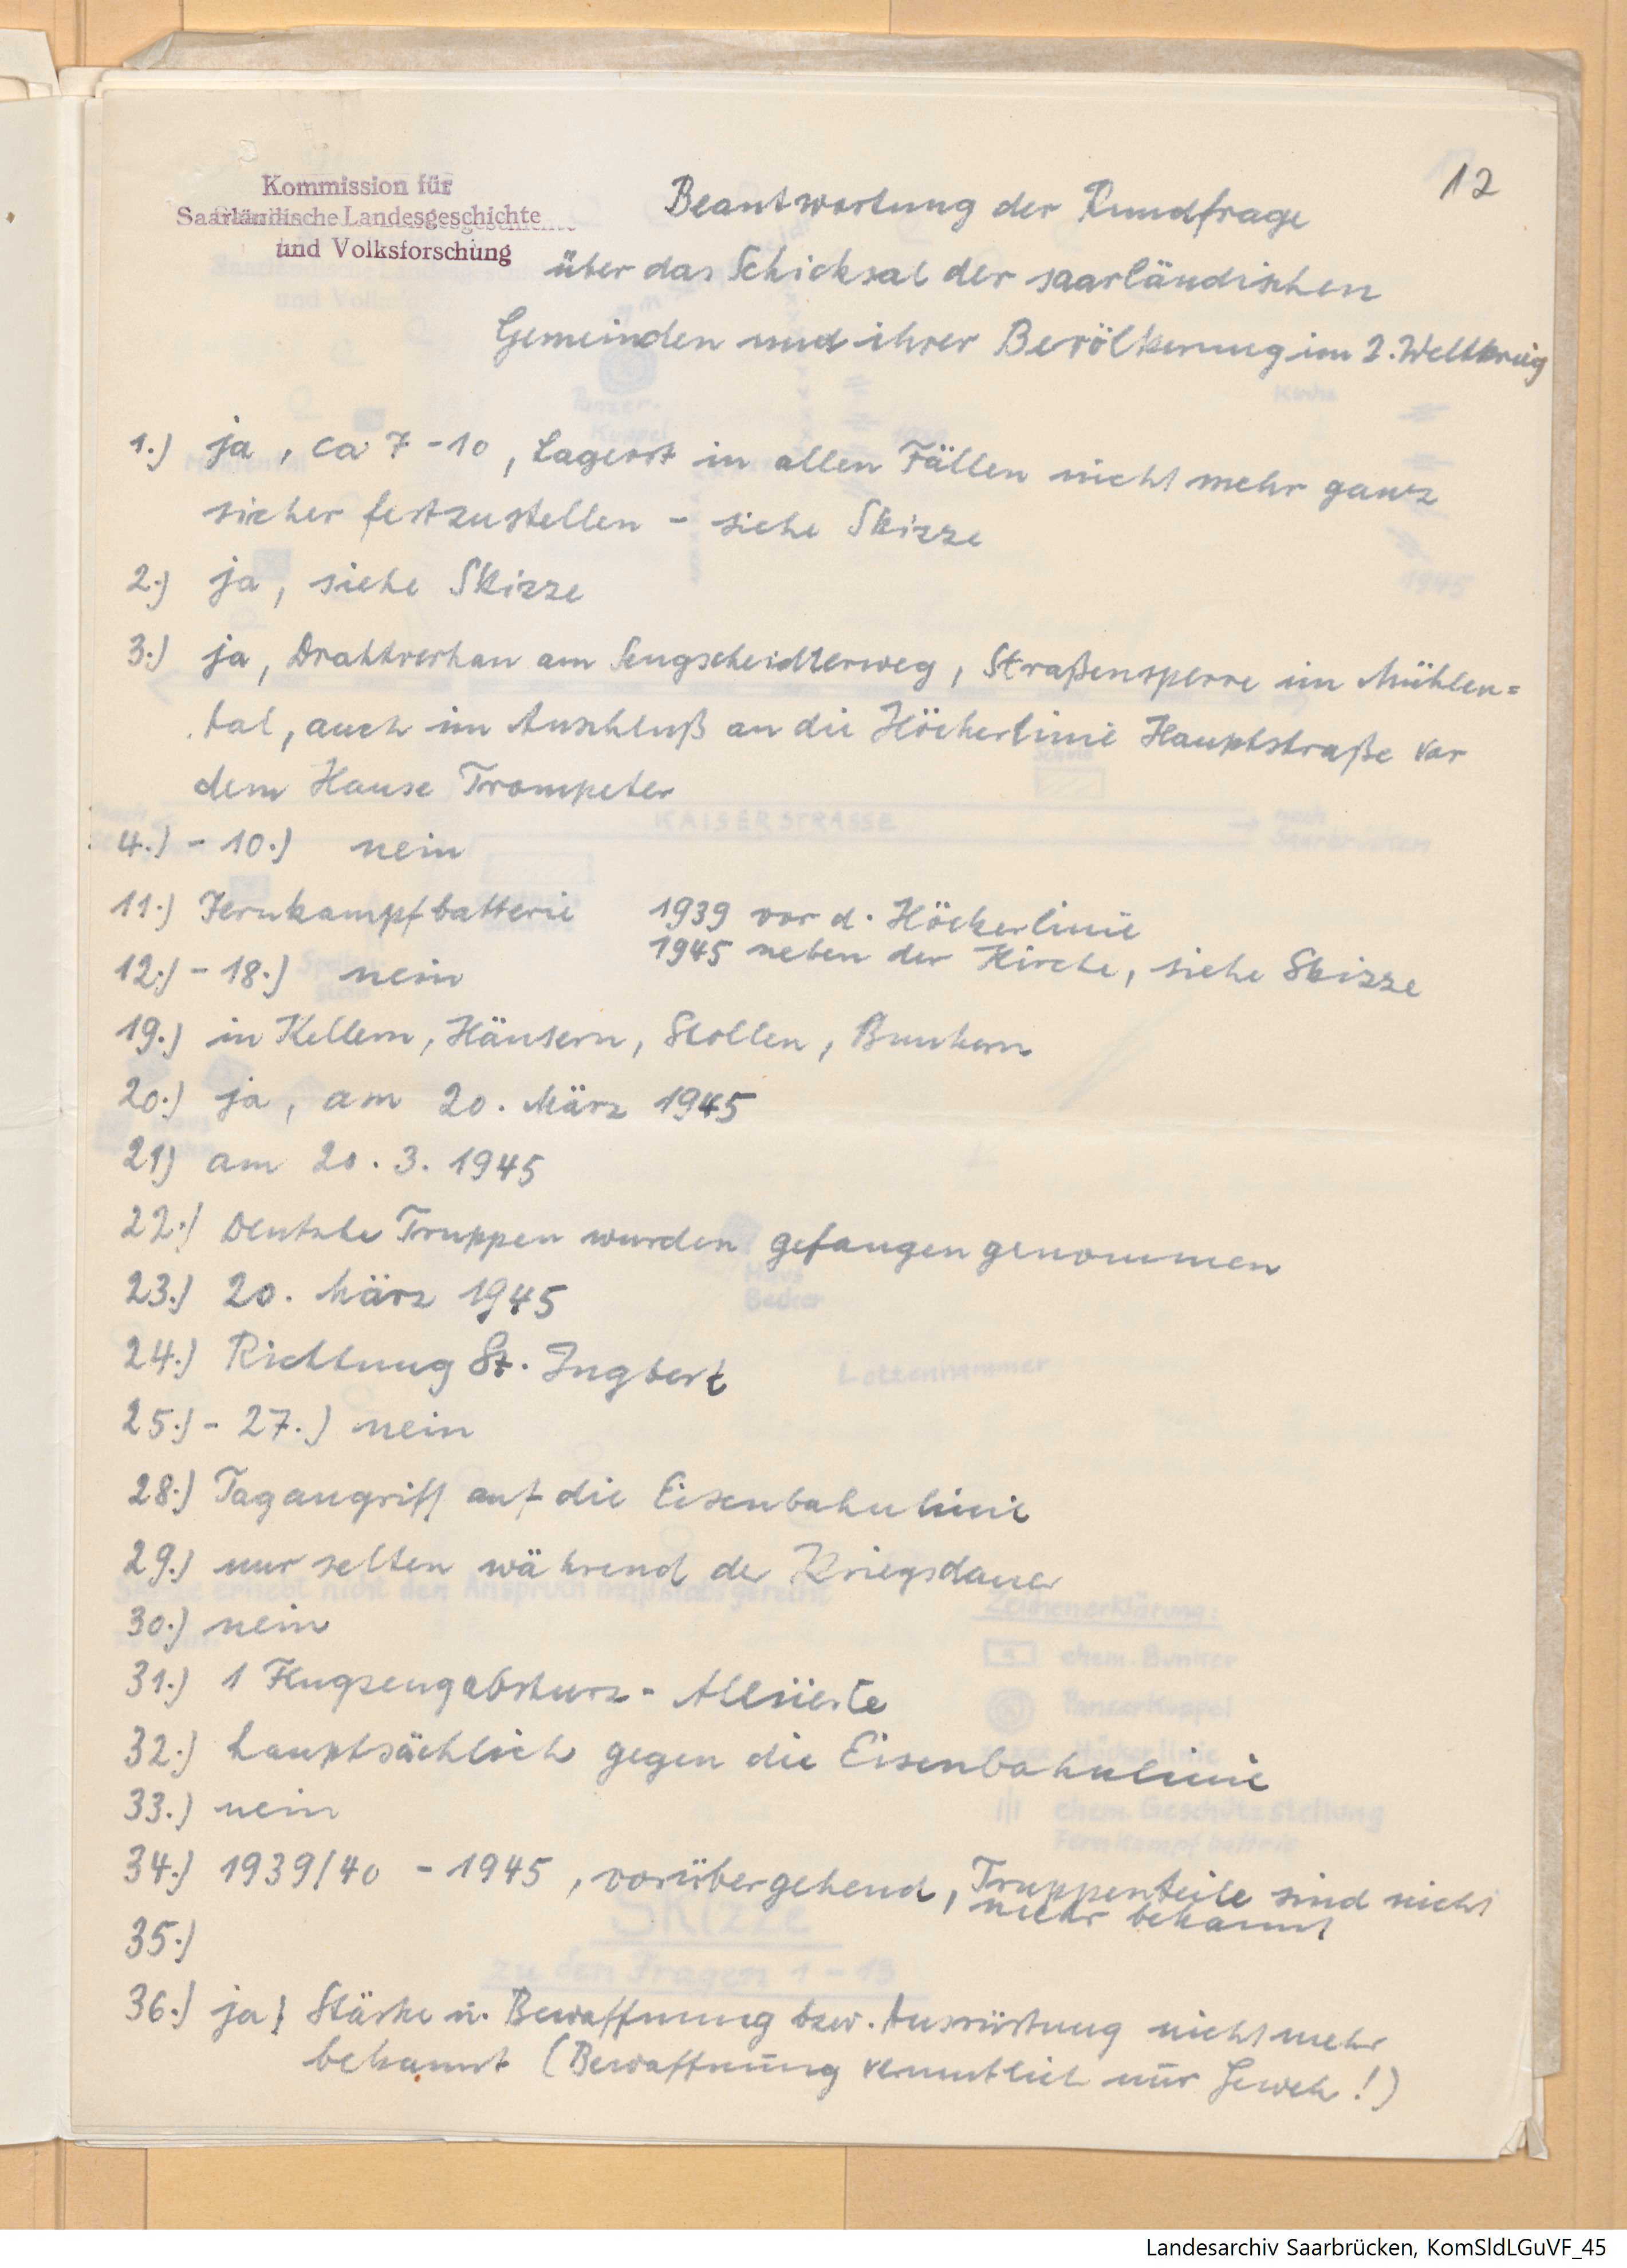 12
Kommission für
Saarländische Landesgeschichte
und Volksforschung
Beantwortung der Rundfrage
über das Schicksal der saarländischen
Gemeinden und ihrer Bevölkerung im 2. Weltkrieg
1.) ja, ca 7-10, Lagerort in allen Fällen nicht mehr ganz
sicher festzustellen - siehe Skizze
2.) ja, siehe Skizze
3.) ja, Drahtverhau am Sengscheidterweg, Straßensperre im Mühlen=
tal, auch im Anschluß an die Höckerlinie Hauptstraße vor
dem Hause Trompeter
4.) - 10.) nein
11.) Fernkampfbatterie 1939 vor d. Höckerlinie
1945 neben der Kirche, siehe Skizze
12.) - 18.) nein
19.) in Kellern, Häusern, Stollen, Bunkern
20.) ja, am 20. März 1945
21) am 20.3.1945
22.) Deutsche Truppen wurden gefangen genommen
23.) 20. März 1945
24.) Richtung St. Ingbert
25.) - 27.) nein
28.) Tagangriff auf die Eisenbahnlinie
29.) nur selten während der Kriegsdauer
30.) nein
31.) 1 Flugzeugabsturz - Alliierte
32.) hauptsächlich gegen die Eisenbahnlinie
33.) nein
34.) 1939/40 - 1945, vorübergehend, Truppenteile sind nicht
mehr bekannt
35.)
36.) ja! Stärke u. Bewaffnung bzw. Ausrüstung nicht mehr
bekannt (Bewaffnung vermutlich nur Gewehr!)
Landesarchiv Saarbrücken, KomSldLGuVF_45